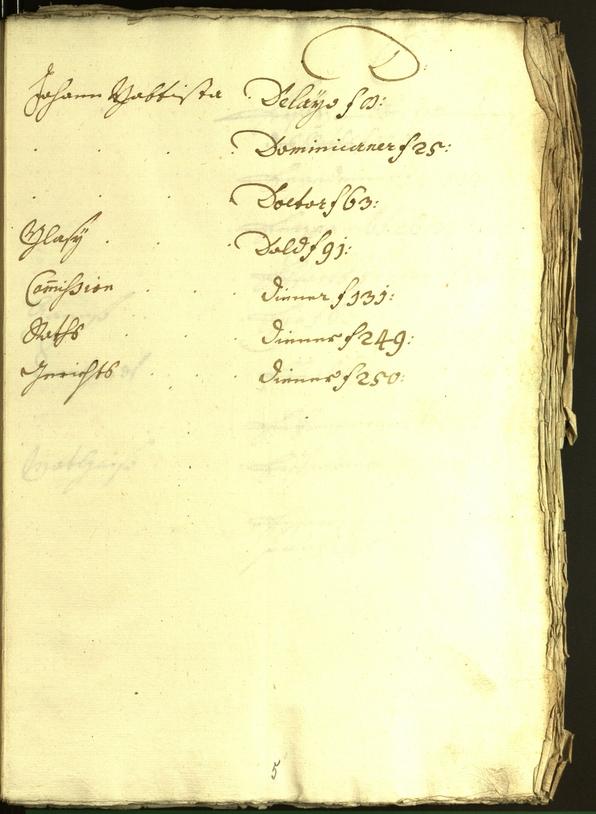 D:
Johann Babtista Delayo f 8:
Dominicaner f 25:
Doctor f 63:
Blasÿ Dold f 91:
Com̄ission diener f 131:
Raths diener f 249:
Gerichts diener f 250:
5